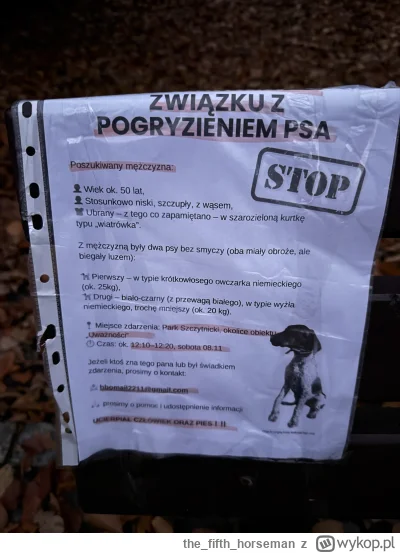 ZWIĄZKU Z
POGRYZIENIEM PSA
Poszukiwany mężczyzna:
STOP
Wiek ok. 50 lat,
Stosunkowo niski, szczupły, z wąsem,
Ubrany – z tego co zapamiętano – w szarozieloną kurtkę
typu „wiatrówka".
Z mężczyzną były dwa psy bez smyczy (oba miały obroże, ale
biegały luzem):
Pierwszy – w typie krótkowłosego owczarka niemieckiego
(ok. 25kg),
Drugi – biało-czarny (z przewagą białego), w typie wyżła
niemieckiego, trochę mniejszy (ok. 20 kg).
Miejsce zdarzenia: Park Szczytnicki, okolice obiektu
„Uważności"
Czas: ok. 12:10–12:20, sobota 08.11
Jeżeli ktoś zna tego pana lub był świadkiem
zdarzenia, prosimy o kontakt:
Prosimy o pomoc i udostępnienie informacji
UCIERPIAŁ CZŁOWIEK ORAZ PIES ! !!
the_fifth_horseman z wykop.pl